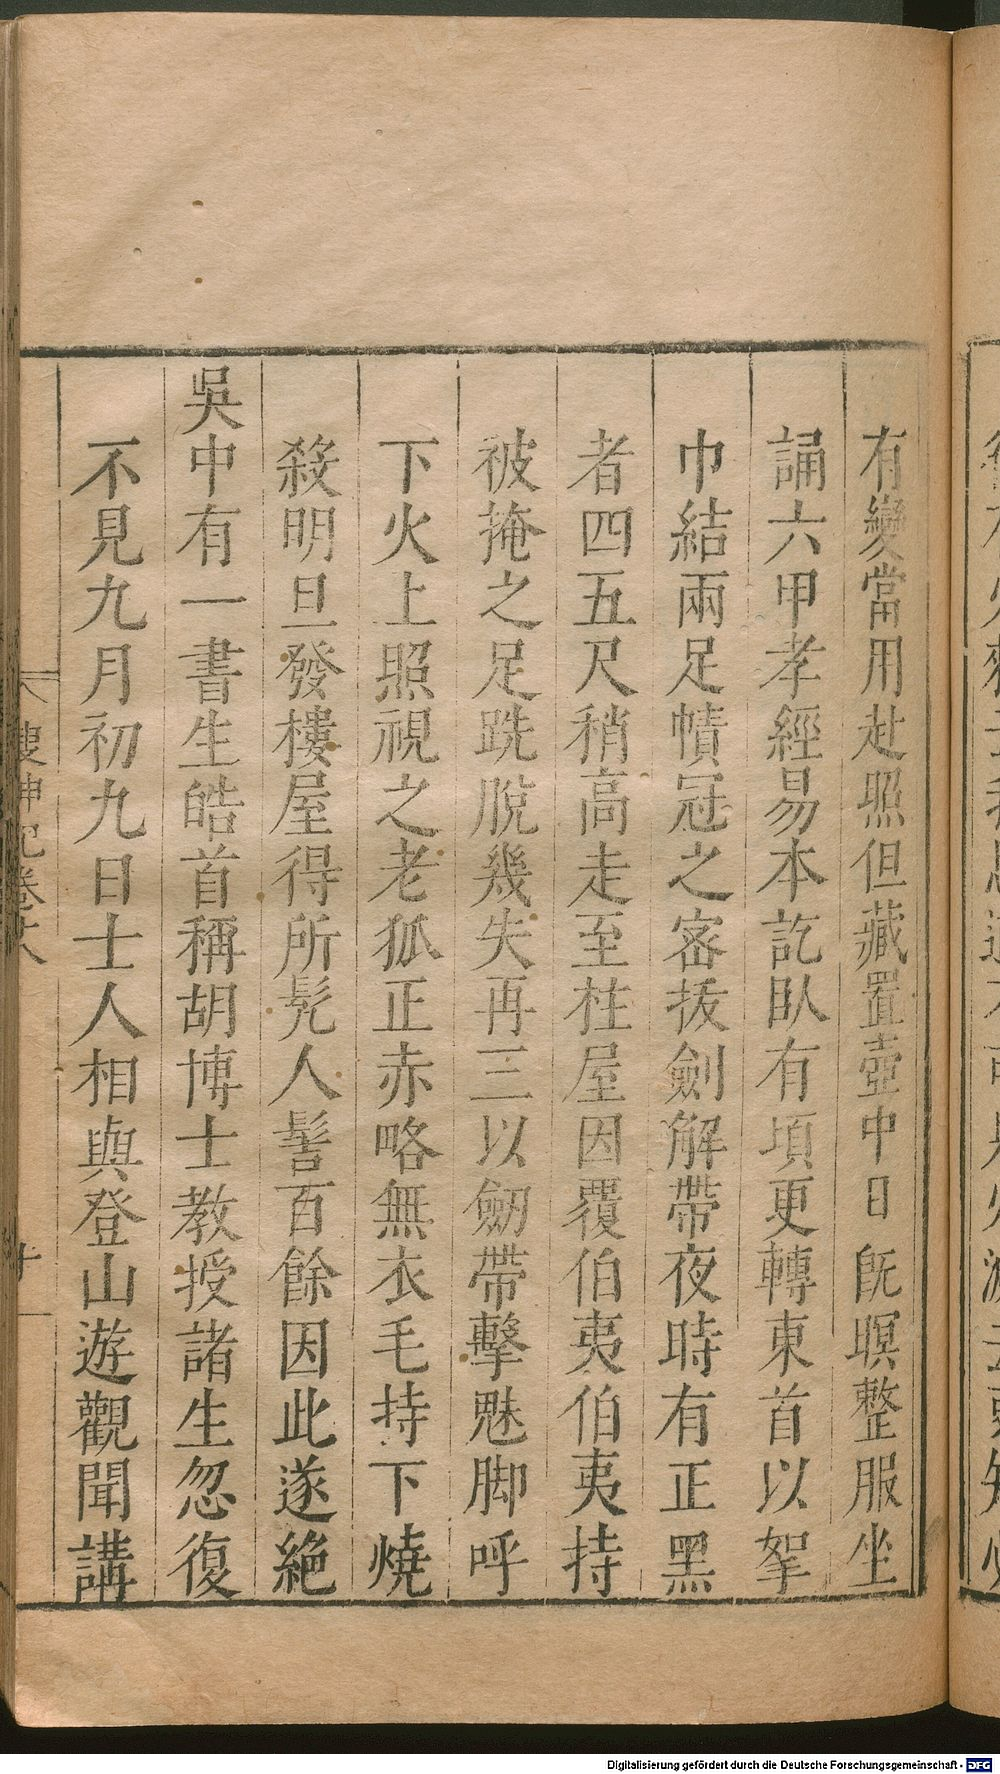 有變當用赴照但藏置壺中日旣暝整服坐
誦六甲孝經易本訖臥有頃更轉東首以挐
巾結兩足幘冠之密拔劍解帶夜時有正黑
者四五尺稍高走至柱屋因覆伯夷伯夷持
被掩之足跣脫幾失再三以劒帶擊魅脚呼
下火上照視之老狐正赤略無衣毛持下燒
殺明旦發樓屋得所髡人髻百餘因此遂絕
吳中有一書生皓首稱胡博士教授諸生忽復
不見九月初九日士人相與登山遊觀聞講
搜神記卷十八
十一
Digitalisierung gefördert durch die Deutsche Forschungsgemeinschaft - DFG